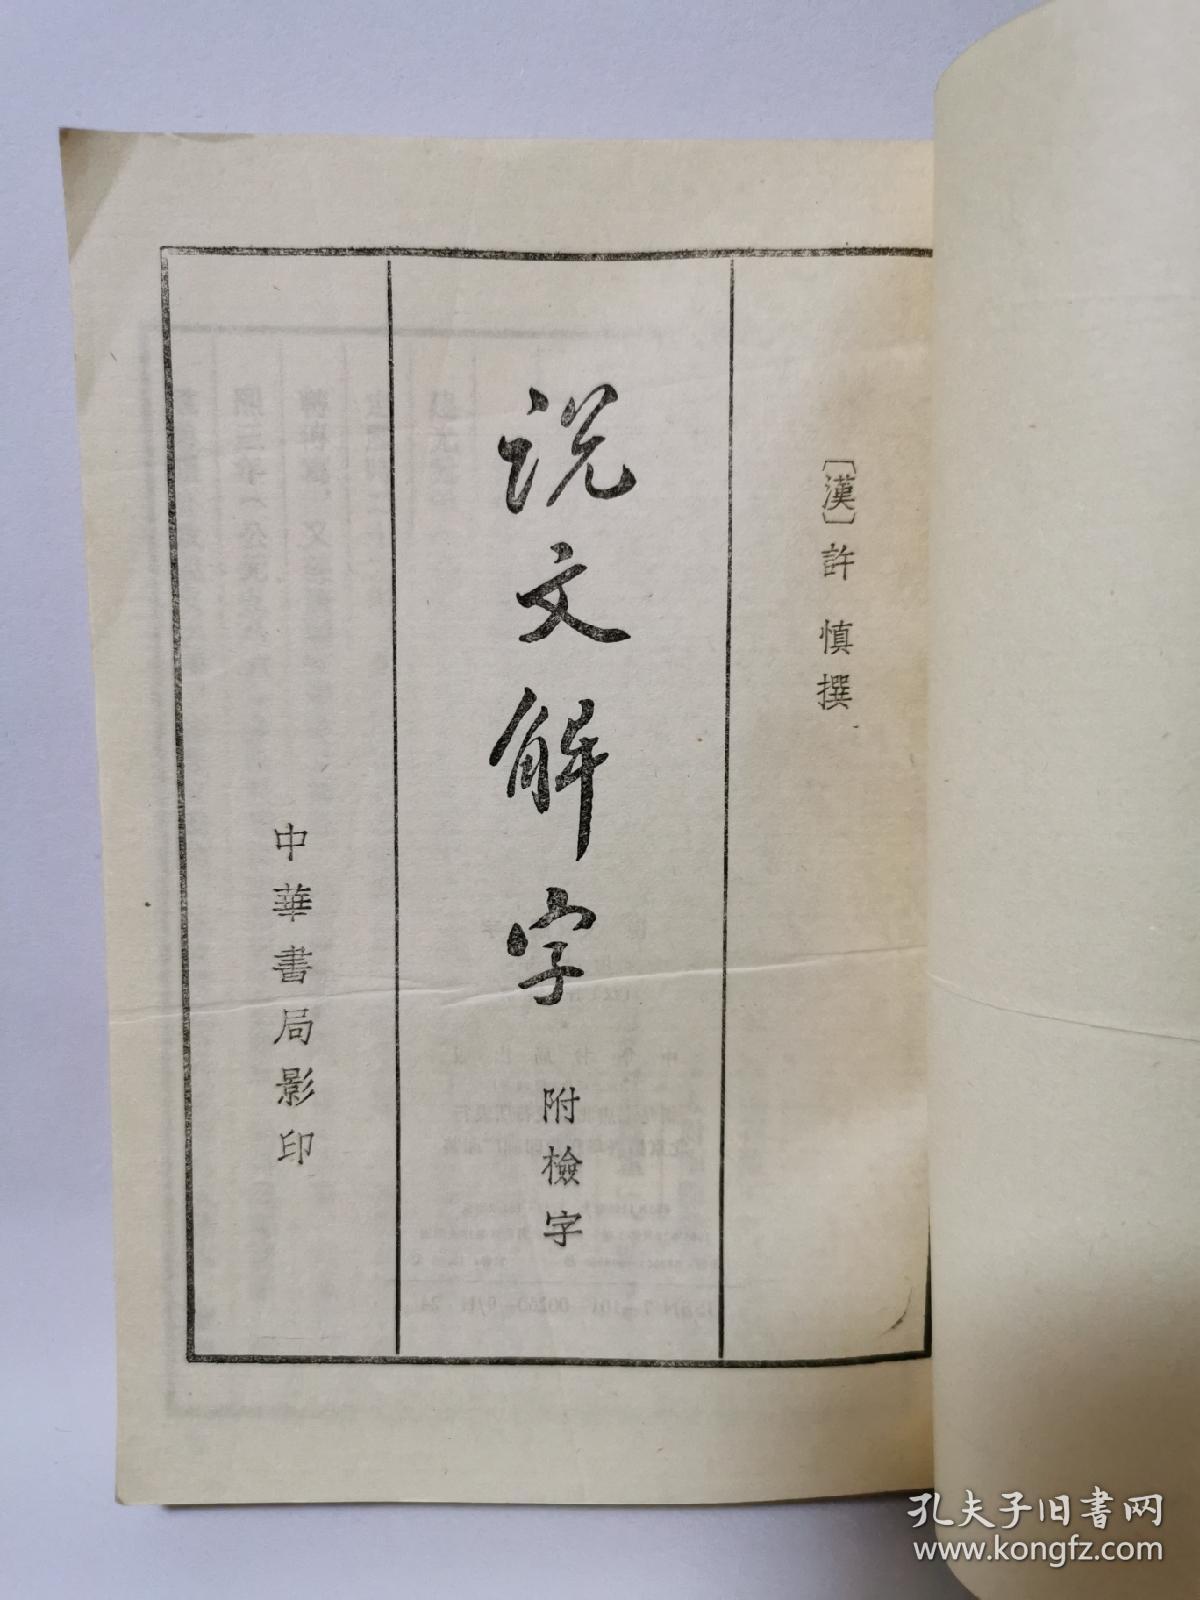 〔漢〕許慎撰
説文解字 附檢字
中華書局影印
孔夫子旧書网
www.kongfz.com